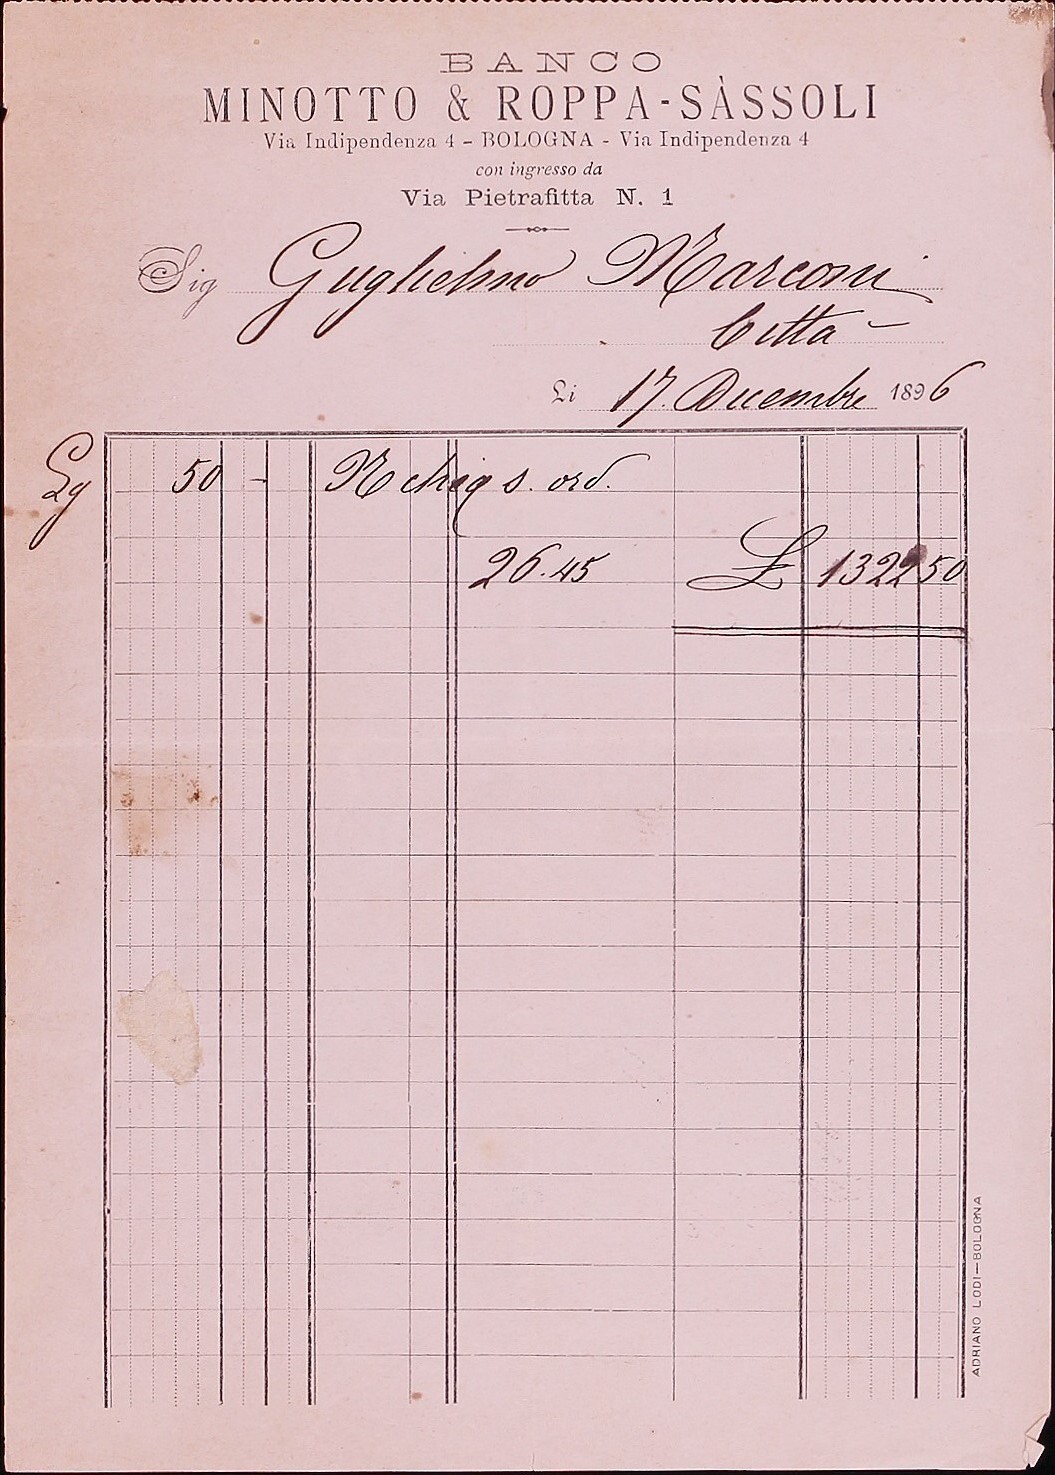 BANCO
MINOTTO & ROPPA-SÀSSOLI
Via Indipendenza 4 - BOLOGNA - Via Indipendenza 4
con ingresso da
Via Pietrafitta N. 1
Sig Guglielmo Marconi
Città -
Li 17. Decembre 1896
Lg 50 - s. ord.
26.45 £ 1322 50
ADRIANO LODI—BOLOGNA